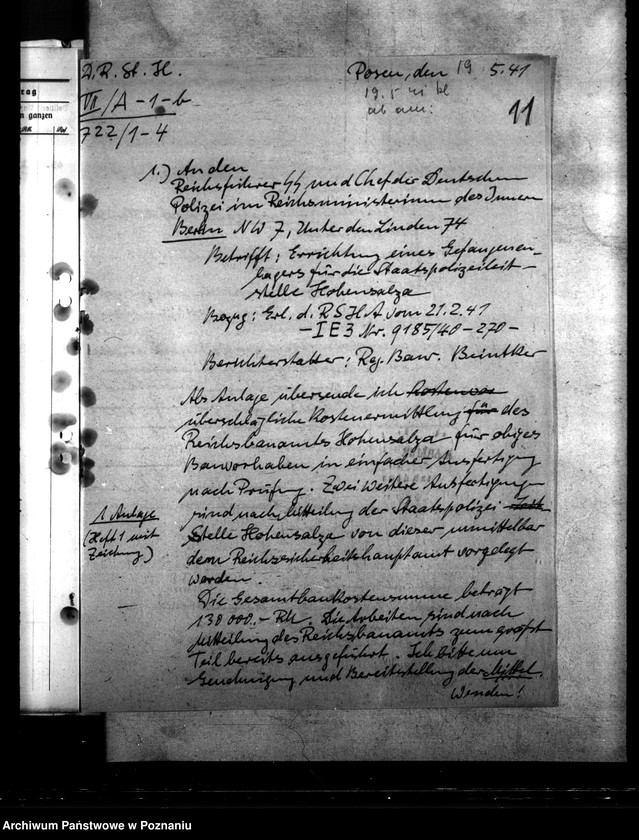 rag
n ganzen
D. R. St. H.
VI/A-1-b
722/1-4
Posen, den 19. 5. 41
19. 5. 41 kl
ab am:
11
1.) An den
Reichsführer SS und Chef der Deutschen
Polizei im Reichsministerium des Innern
Berlin NW 7, Unter den Linden 74
Betrifft: Errichtung eines Gefangenen-
lagers für die Staatspolizeileit-
stelle Hohensalza
Bezug: Erl. d. RSHA vom 21.2.41
-IE3 Nr. 9185/40-270-
Berichterstatter: Reg. Baur. Beintker
Als Anlage übersende ich
überschlägliche Kostenermittlung für des
Reichsbauamts Hohensalza für obiges
Bauvorhaben in einfacher Ausfertigung
nach Prüfung. Zwei weitere Ausfertigungen
sind nach Mitteilung der Staatspolizei
Stelle Hohensalza von dieser unmittelbar
dem Reichssicherheitshauptamt vorgelegt
worden.
1 Anlage
(Heft 1 mit
Zeichnung)
Die Gesamtbaukostensumme beträgt
138 000.- RM. Die Arbeiten sind nach
Mitteilung des Reichsbauamts zum größt
Teil bereits ausgeführt. Ich bitte um
Genehmigung und Bereitstellung der Mittel.
Wenden!
Archiwum Państwowe w Poznaniu